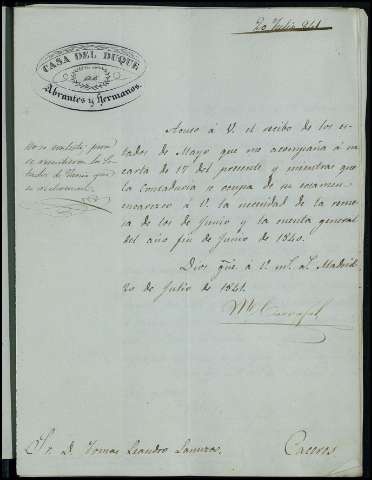 20 Julio 841
CASA DEL DUQUE
DE
Abrantes y Hermanos.
No se contestó pues
se remitieron los Es-
tados de Junio que
se reclaman.
Acuso á V. el recibo de los es-
tados de Mayo que me acompaña á su
carta de 17 del presente y mientras que
la Contaduria se ocupa de su examen
encarezco á V. la necesidad de la reme-
sa de los de Junio y la cuenta general
del año fin de Junio de 1840.
Dios gue. á V. ms. as. Madrid
20 de Julio de 1841.
Ml. Carvajal
Sr. D. Tomas Leandro
Caceres